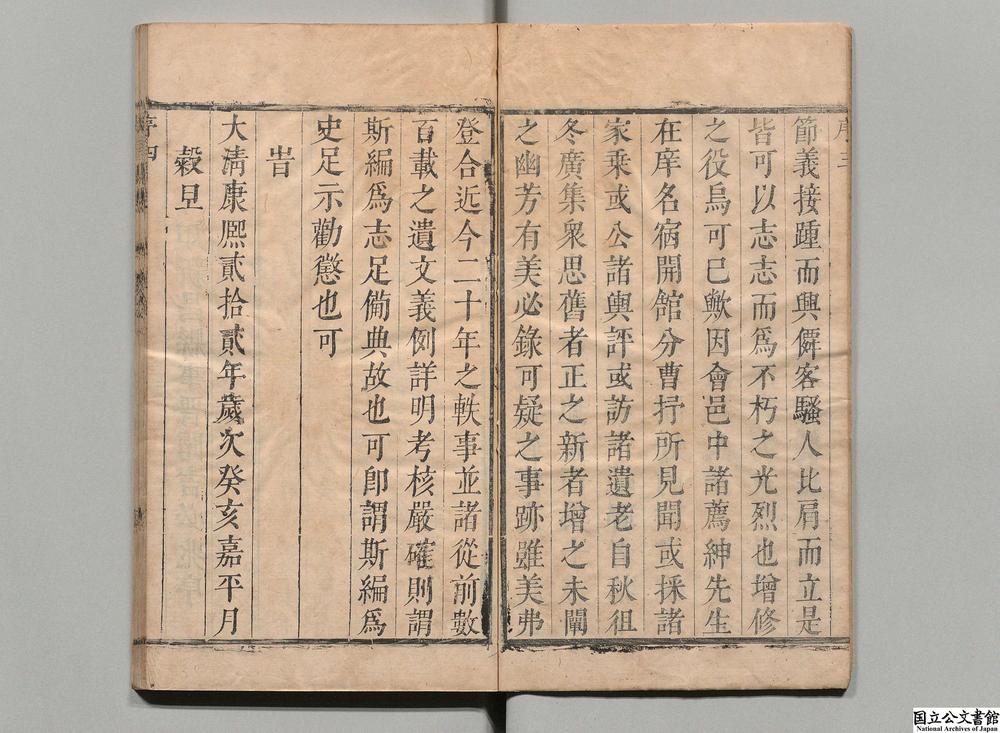 序三
節義接踵而興僻客騷人比肩而立是
皆可以志志而爲不朽之光烈也增修
之役烏可已歟因會邑中諸薦紳先生
在庠名宿開館分曹抒所見聞或採諸
家乘或公諸輿評或訪諸遺老自秋徂
冬廣集衆思舊者正之新者增之未闡
之幽芳有美必錄可疑之事跡雖美弗
登合近今二十年之軼事並諸從前數
百載之遺文義例詳明考核嚴確則謂
斯編爲志足備典故也可卽謂斯編爲
史足示勸懲也可
旹
大淸康熈貳拾貳年歲次癸亥嘉平月
穀旦
序四
国立公文書館
National Archives of Japan